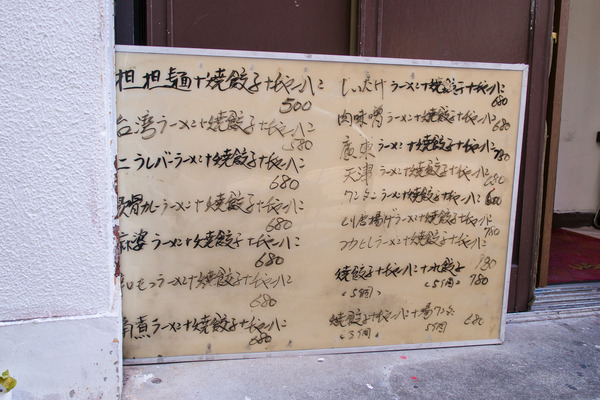 担担麺+焼餃子+チャーハン
500
台湾ラーメン+焼餃子+チャーハン
580
ニラレバーラーメン+焼餃子+チャーハン
680
カレーラーメン+焼餃子+チャーハン
680
麻婆ラーメン+焼餃子+チャーハン
680
もつラーメン+焼餃子+チャーハン
680
角煮ラーメン+焼餃子+チャーハン
680
しいたけラーメン+焼餃子+チャーハン
680
肉味噌ラーメン+焼餃子+チャーハン
680
廣東ラーメン+焼餃子+チャーハン
780
天津ラーメン+焼餃子+チャーハン
680
ワンタンラーメン+焼餃子+チャーハン
とり唐揚げラーメン+焼餃子+チャーハン
780
ラーメン+焼餃子+チャーハン
780
焼餃子+チャーハン+水餃子
(5個) (5個) 780
焼餃子+チャーハン+揚ワンタン
(3個) 5個 680